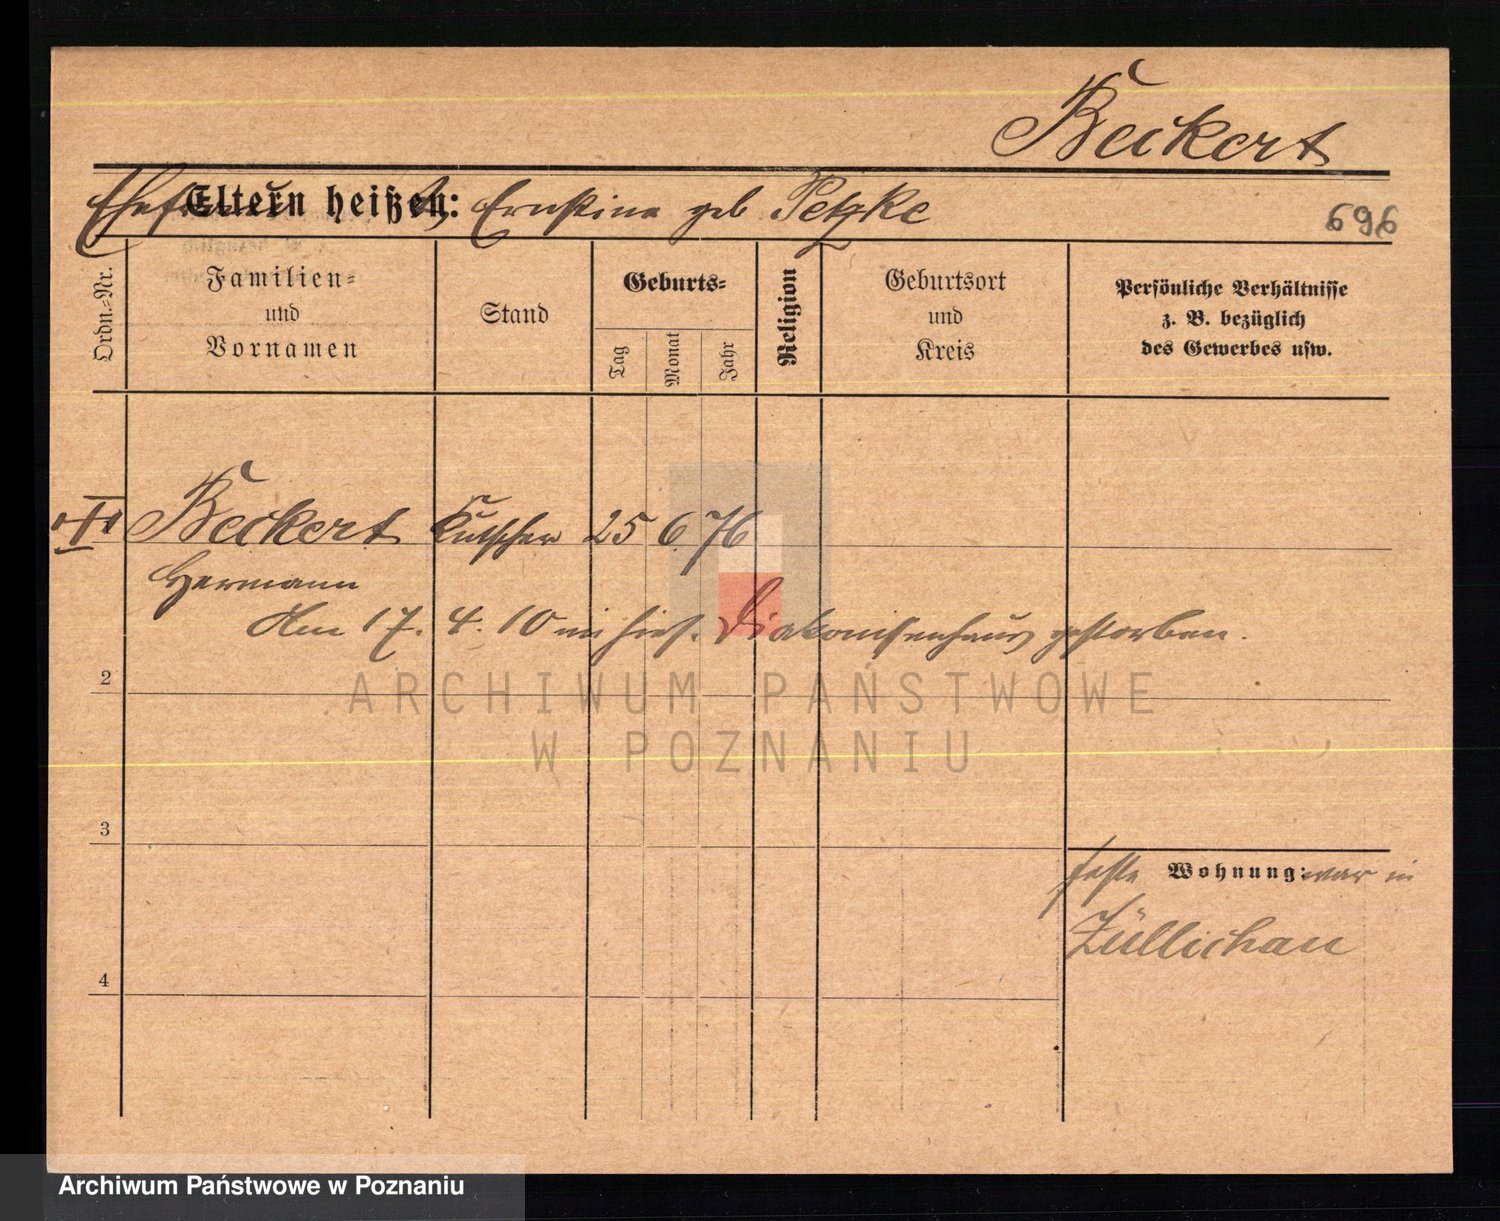 Beckert
Ehefrau Eltern heißen: Ernstine geb Petzke
696
Ordn.=Nr.
Familien=
und
Vornamen
Stand
Geburts=
Tag
Monat
Jahr
Religion
Geburtsort
und
Kreis
Persönliche Verhältnisse
z. B. bezüglich
des Gewerbes usw.
Beckert Kutscher 25 6. 76
Hermann
Am 17. 4. 10 im hies. Diakonissenhaus gestorben.
2
ARCHIWUM PAŃSTWOWE
W POZNANIU
3
feste Wohnung: war in
Züllichau
4
Archiwum Państwowe w Poznaniu